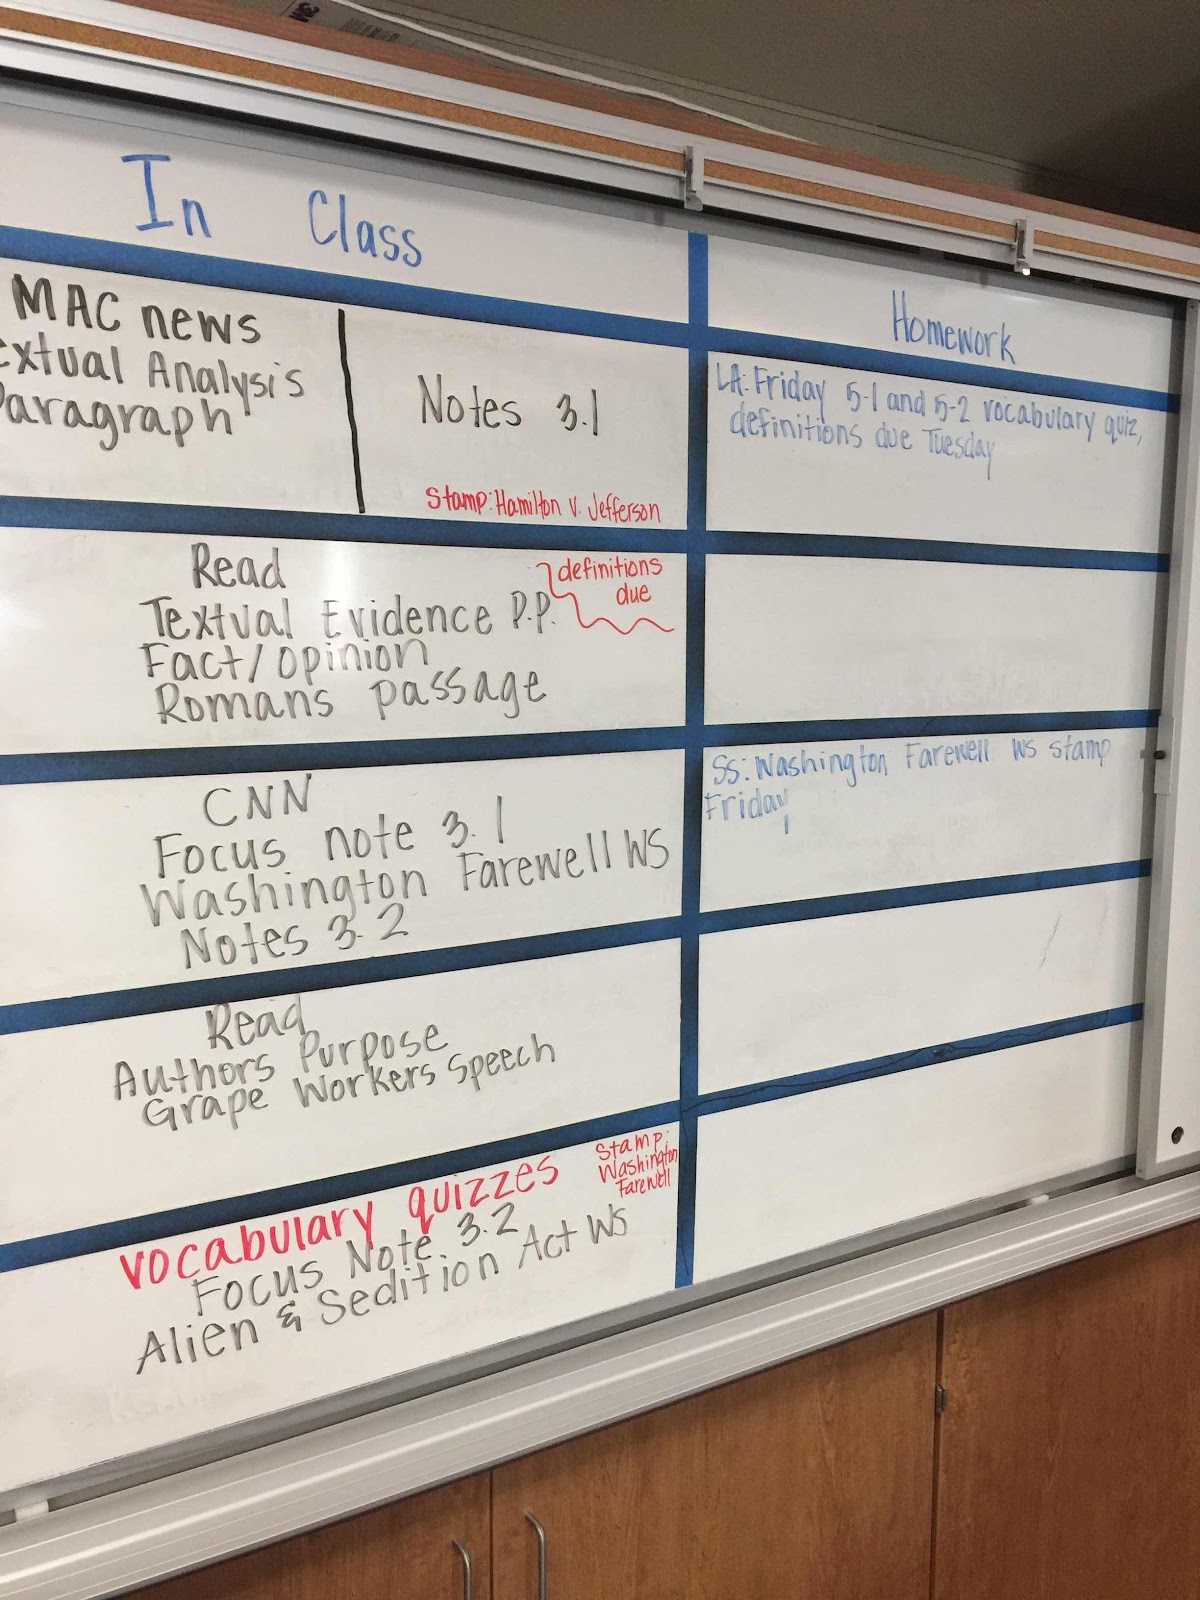 In Class
Homework
MAC news
extual Analysis
Paragraph
Notes 3.1
Stamp: Hamilton v. Jefferson
LA: Friday 5-1 and 5-2 vocabulary quiz,
definitions due Tuesday
Read
Textual Evidence P.P.
Fact/opinion
Romans passage
definitions
due
CNN
Focus note 3.1
Washington Farewell WS
Notes 3.2
SS: Washington Farewell WS stamp
Friday
Read
Authors Purpose
Grape Workers Speech
vocabulary quizzes
Focus Note 3.2
Alien & Sedition Act WS
Stamp:
Washington
Farewell